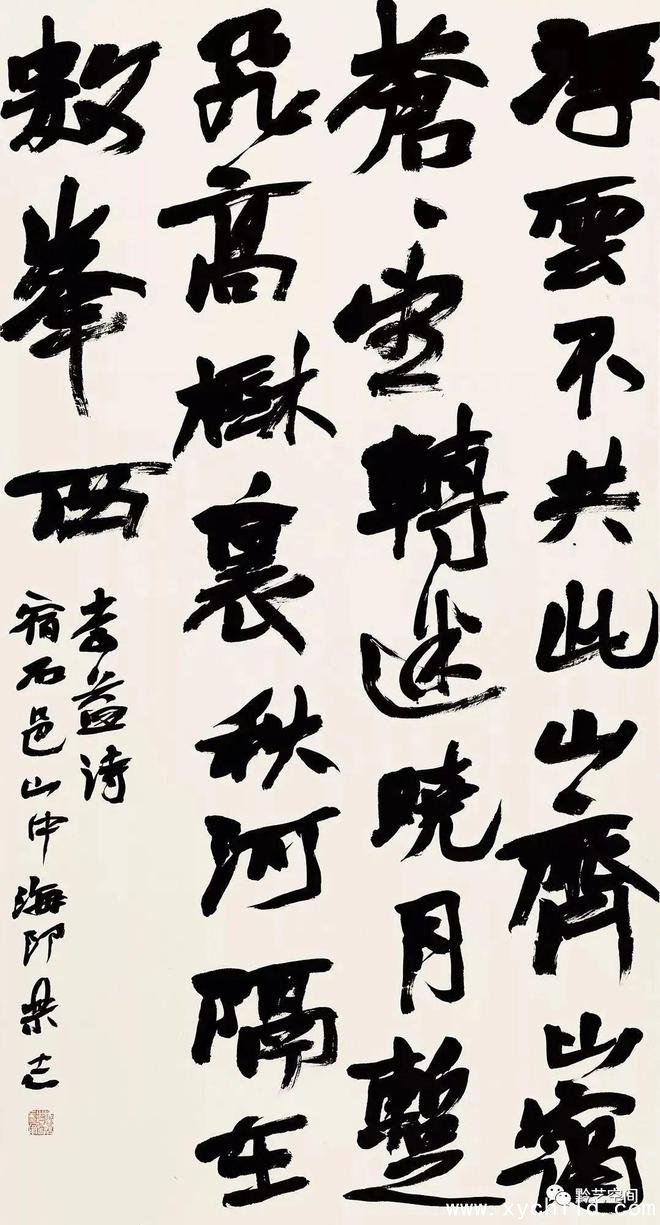 浮雲不共此山齊山靄
蒼々望轉迷曉月暫
飛高樹裏秋河隔在
数峯西
李益詩
宿石邑山中海印
黔艺空间
www.xychild.com